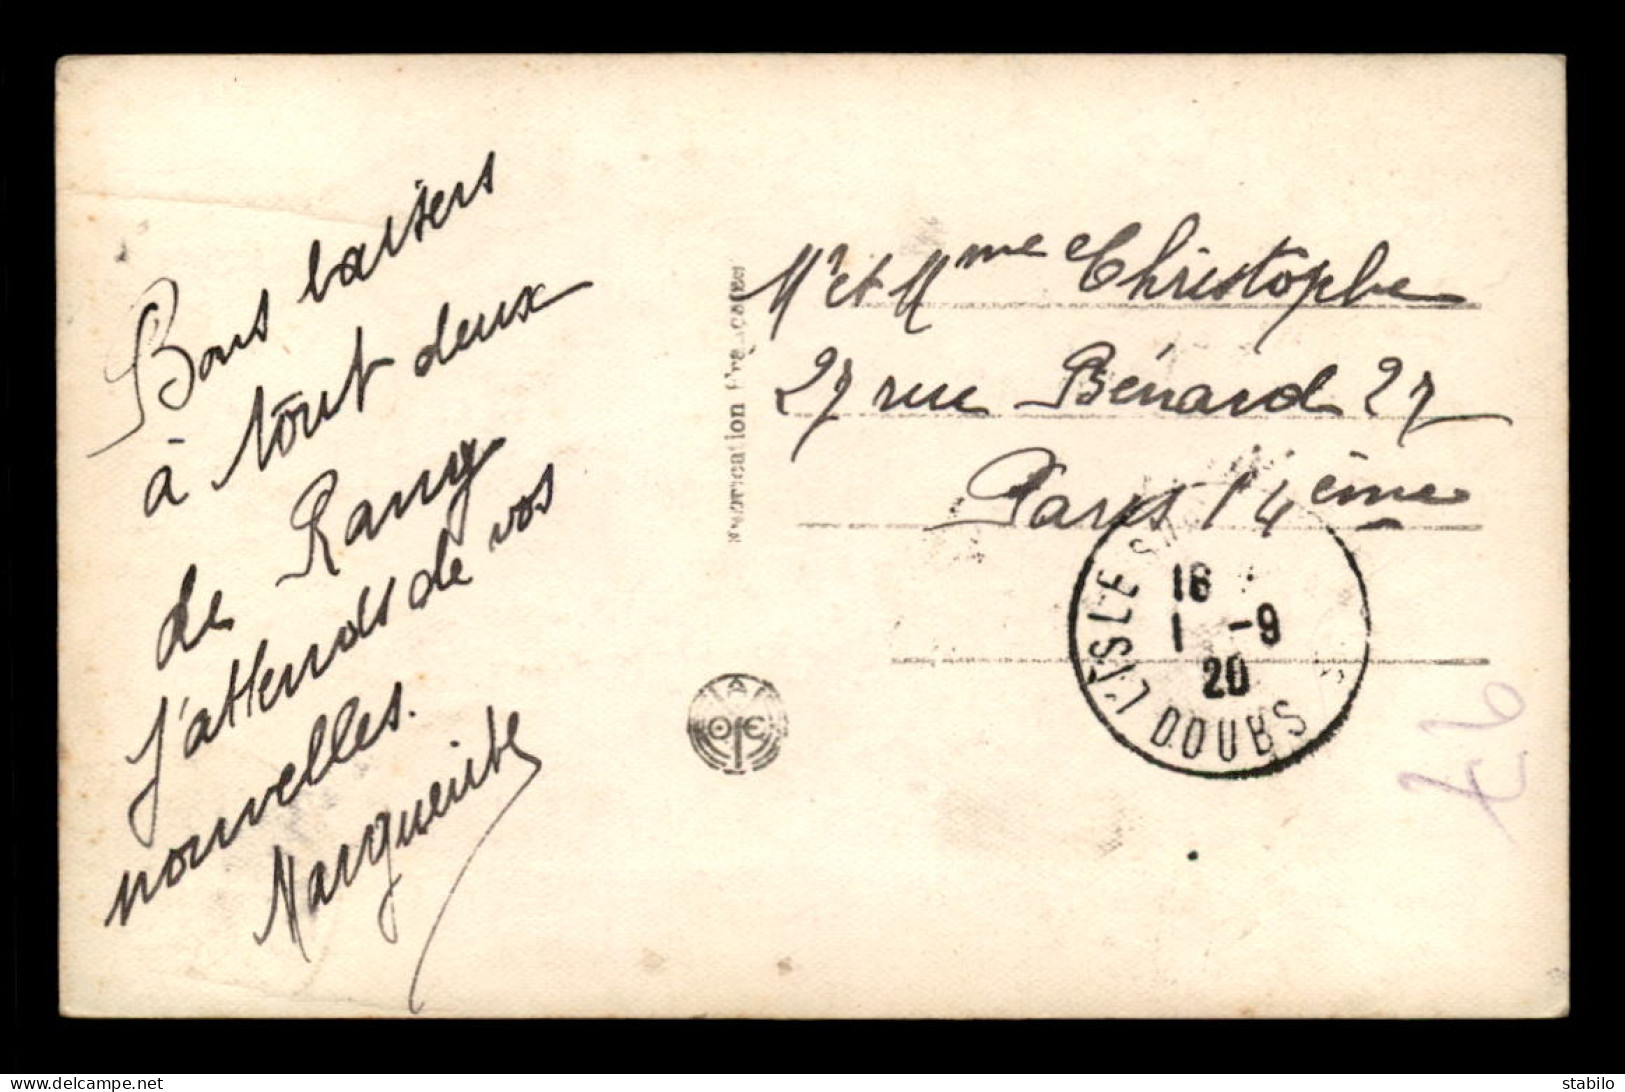 Bons baisers
à tout deux
de Rang
J'attends de vos
nouvelles.
Marguerite
Fabrication Française
Mr et Mme Christophe
27 rue Bénard 27
Paris 14ème
L'ISLE S
16
1 -9
20
DOUBS
stabilo